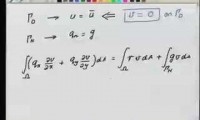 Γ_D → u = ū ⇐ v = 0 on Γ_D
Γ_N → q_n = g
∫_Ω (q_x ∂v/∂x + q_y ∂v/∂y) dA = ∫_Ω r v dA + ∫_{Γ_N} g v dA